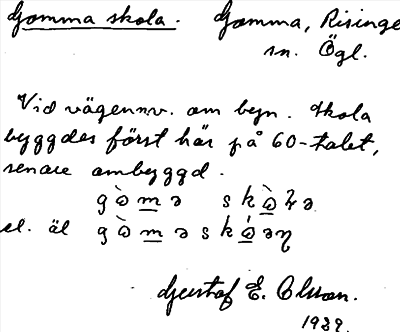 Gomma skola. Gomma, Risinge
sn. Ögl.
Vid vägen nv. om byn. Skola
byggdes först här på 60-talet,
senare ombyggd.
gò̤m̲ə skò̤ɫə
el. äl gò̤m̲ə skó̤əɳ
Gustaf E. Olsson.